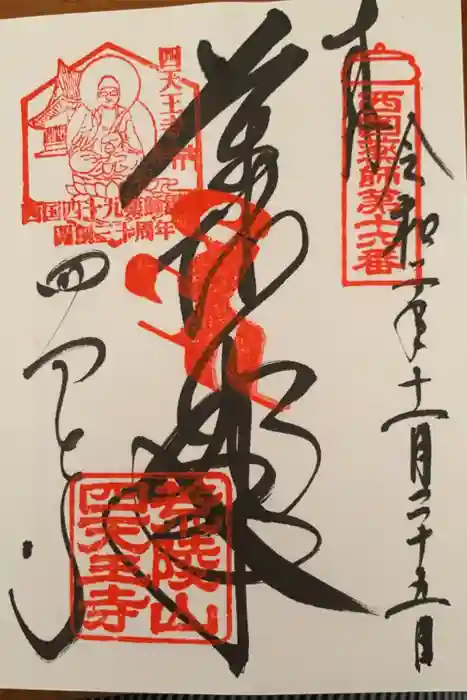 奉拝
令和二年十一月二十五日
西国薬師第十六番
薬師如来
四天王寺
西国四十九薬師霊場
開創三十周年
四天王寺
塔世山
四天王寺